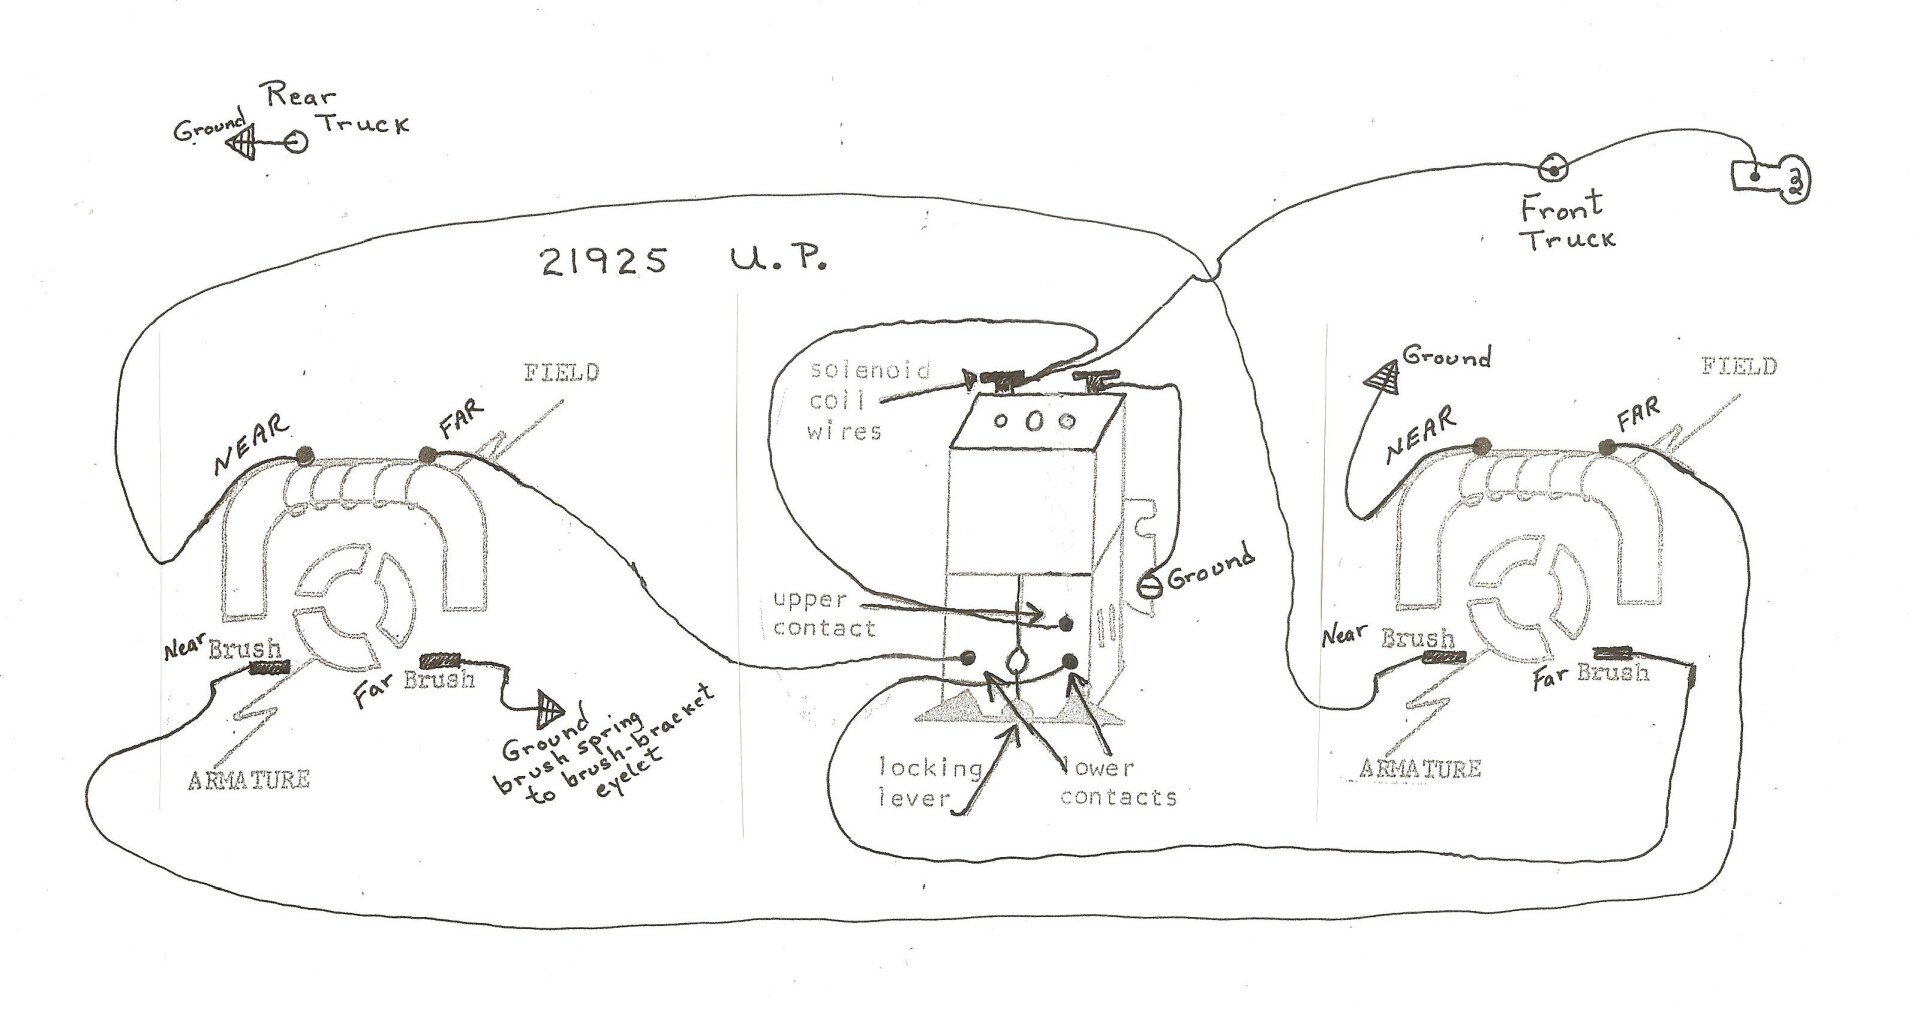 Rear
Truck
Ground
Front
Truck
3
21925 U.P.
FIELD
NEAR
FAR
solenoid
coil
wires
Ground
FIELD
NEAR
FAR
upper
contact
Ground
Near Brush
Far Brush
ARMATURE
Ground
brush spring
to brush-bracket
eyelet
locking
lever
lower
contacts
Near Brush
Far Brush
ARMATURE